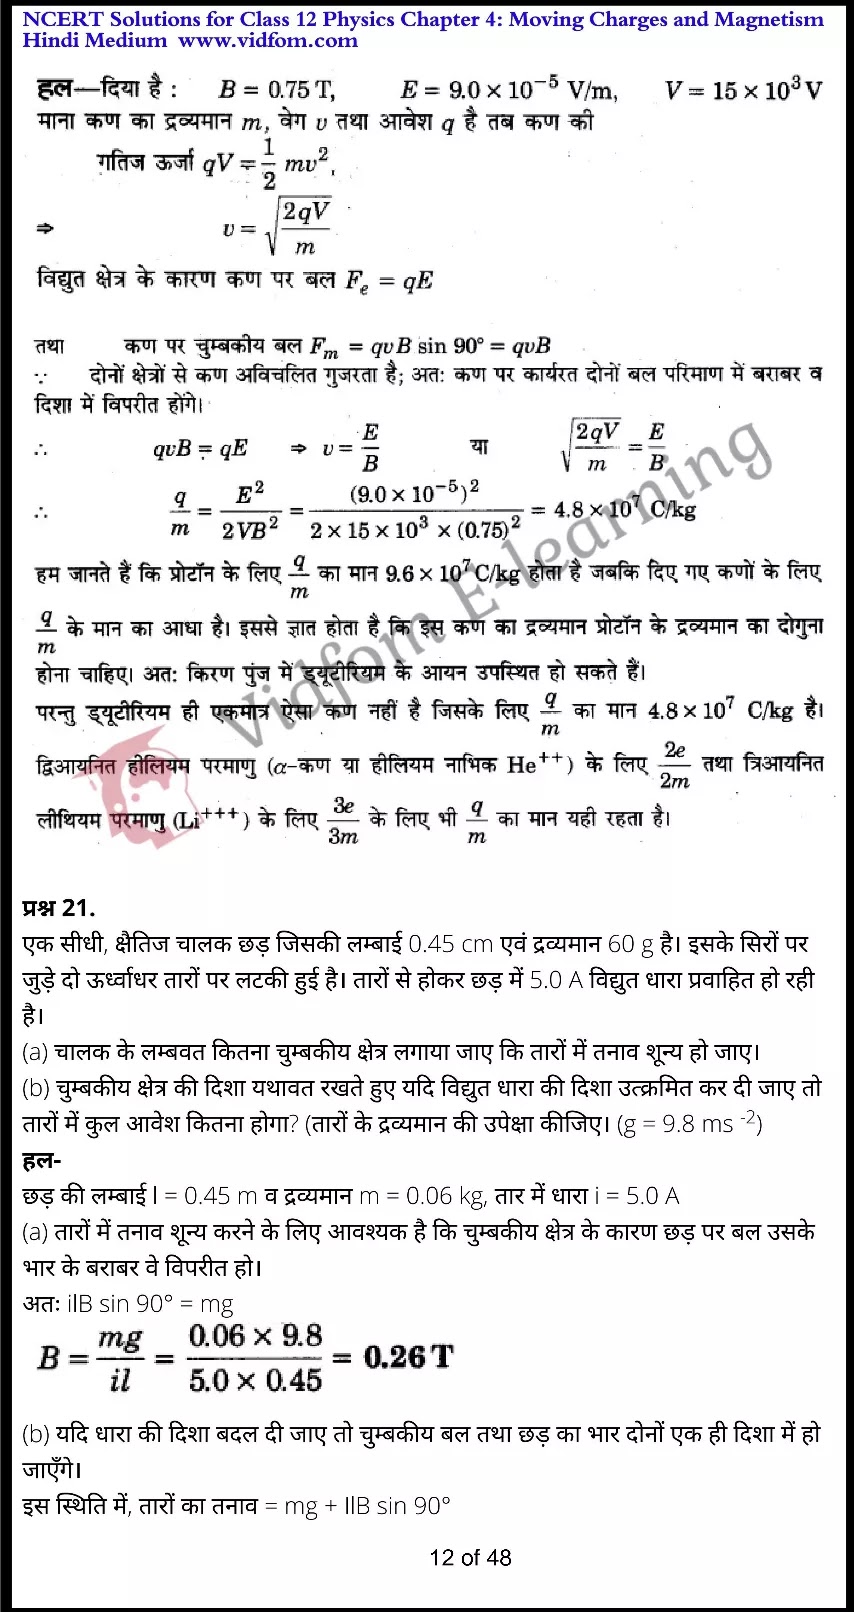 NCERT Solutions for Class 12 Physics Chapter 4: Moving Charges and Magnetism
Hindi Medium www.vidfom.com
हल—दिया है : B = 0.75 T, E = 9.0 × 10⁻⁵ V/m, V = 15 × 10³ V
माना कण का द्रव्यमान m, वेग υ तथा आवेश q है तब कण की
गतिज ऊर्जा qV = 1/2 mυ²,
⇒ υ = √(2qV/m)
विद्युत क्षेत्र के कारण कण पर बल Fₑ = qE
तथा कण पर चुम्बकीय बल Fₘ = qυB sin 90° = qυB
∵ दोनों क्षेत्रों से कण अविचलित गुजरता है; अतः कण पर कार्यरत दोनों बल परिमाण में बराबर व
दिशा में विपरीत होंगे।
∴ qυB = qE ⇒ υ = E/B या √(2qV/m) = E/B
∴ q/m = E²/2VB² = (9.0 × 10⁻⁵)²/2 × 15 × 10³ × (0.75)² = 4.8 × 10⁷ C/kg
हम जानते हैं कि प्रोटॉन के लिए q/m का मान 9.6 × 10⁷ C/kg होता है जबकि दिए गए कणों के लिए
q/m के मान का आधा है। इससे ज्ञात होता है कि इस कण का द्रव्यमान प्रोटॉन के द्रव्यमान का दोगुना
होना चाहिए। अतः किरण पुंज में ड्यूटीरियम के आयन उपस्थित हो सकते हैं।
परन्तु ड्यूटीरियम ही एकमात्र ऐसा कण नहीं है जिसके लिए q/m का मान 4.8 × 10⁷ C/kg है।
द्विआयनित हीलियम परमाणु (α-कण या हीलियम नाभिक He⁺⁺) के लिए 2e/2m तथा त्रिआयनित
लीथियम परमाणु (Li⁺⁺⁺) के लिए 3e/3m के लिए भी q/m का मान यही रहता है।
Vidfom E-learning
प्रश्न 21.
एक सीधी, क्षैतिज चालक छड़ जिसकी लम्बाई 0.45 cm एवं द्रव्यमान 60 g है। इसके सिरों पर
जुड़े दो ऊर्ध्वाधर तारों पर लटकी हुई है। तारों से होकर छड़ में 5.0 A विद्युत धारा प्रवाहित हो रही
है।
(a) चालक के लम्बवत कितना चुम्बकीय क्षेत्र लगाया जाए कि तारों में तनाव शून्य हो जाए।
(b) चुम्बकीय क्षेत्र की दिशा यथावत रखते हुए यदि विद्युत धारा की दिशा उत्क्रमित कर दी जाए तो
तारों में कुल आवेश कितना होगा? (तारों के द्रव्यमान की उपेक्षा कीजिए। (g = 9.8 ms ⁻²)
हल-
छड़ की लम्बाई l = 0.45 m व द्रव्यमान m = 0.06 kg, तार में धारा i = 5.0 A
(a) तारों में तनाव शून्य करने के लिए आवश्यक है कि चुम्बकीय क्षेत्र के कारण छड़ पर बल उसके
भार के बराबर वे विपरीत हो।
अतः ilB sin 90° = mg
B = mg/il = 0.06 × 9.8/5.0 × 0.45 = 0.26 T
(b) यदि धारा की दिशा बदल दी जाए तो चुम्बकीय बल तथा छड़ का भार दोनों एक ही दिशा में हो
जाएँगे।
इस स्थिति में, तारों का तनाव = mg + IlB sin 90°
12 of 48